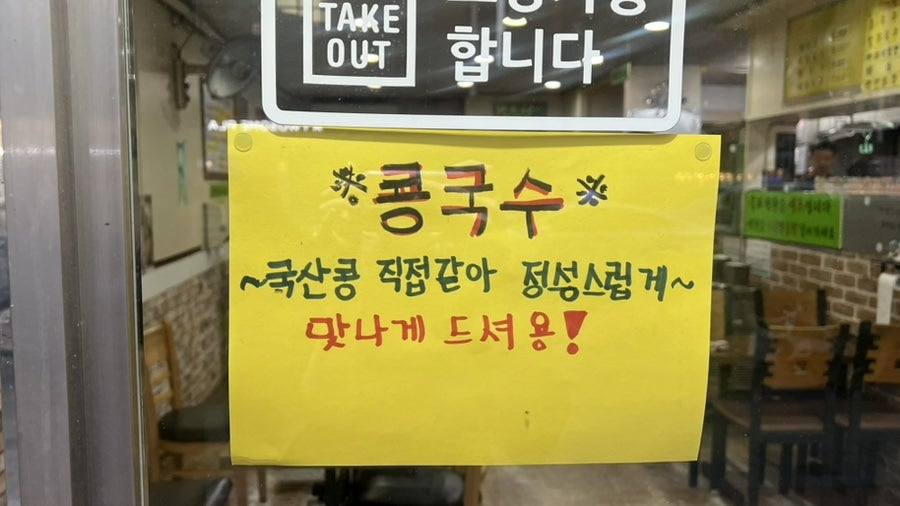 TAKE
OUT
합니다
*콩국수*
~국산콩 직접같아 정성스럽게~
맛나게 드셔용!